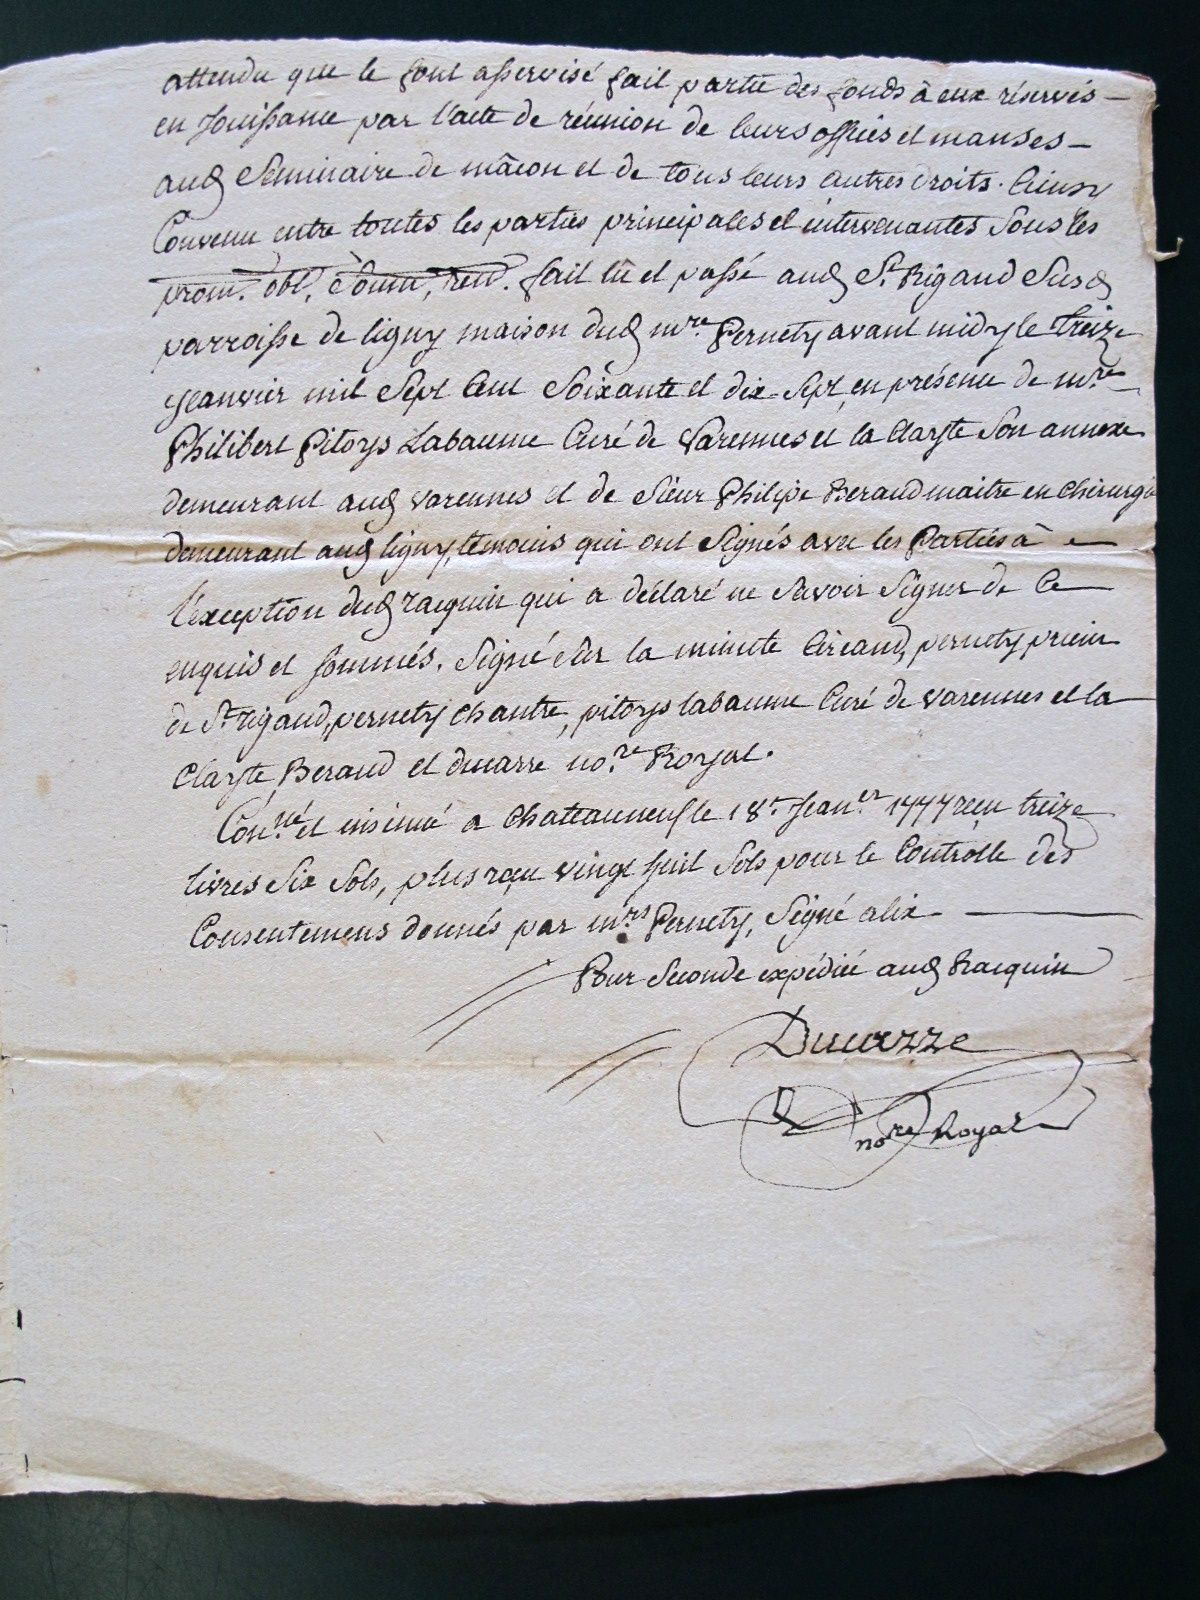 attendu que le font asservisé fait partie des fonds à eux réservés —
en Jouissance par l'acte de réunion de leurs offices et manses —
aud Seminaire de mâcon et de tous leurs autres droits. Ainsy
Convenu entre toutes les parties principales et intervenantes Sous les
prom. obl. Soum, ren. fait lu et passé aud St. Rigaud Susd
parroisse de ligny maison dud mre Pernety avant midy le treize
Jeanvier mil Sept Cent Soixante et dix-Sept, en présence de mre
Philibert Pitoys Labaume Curé de Varennes et la Clayte Son annexe
demeurant aud varennes et de Sieur Philipe Beraud maitre en chirurgie
demeurant aud ligny, témoins qui ont Signés avec les Parties à —
l'exception dud racquin qui a déclaré ne Savoir Signer de Ce —
enquis et Sommés. Signé Sur la minute Circaud, pernety prieur
de St rigaud, pernety chantre, pitoys labaume Curé de varennes et la
Clayte Beraud et ducarre no.re Royal.
Con.né et insinué a Chateauneuf le 18e Jean.er 1777 reçu treize
livres Six Sols, plus reçu vingt huit Sols pour le Controlle des
Consentemens donnés par mrs Pernety, Signé alix —
Pour Seconde expédiée aud Racquin
Ducarre
nore Royal